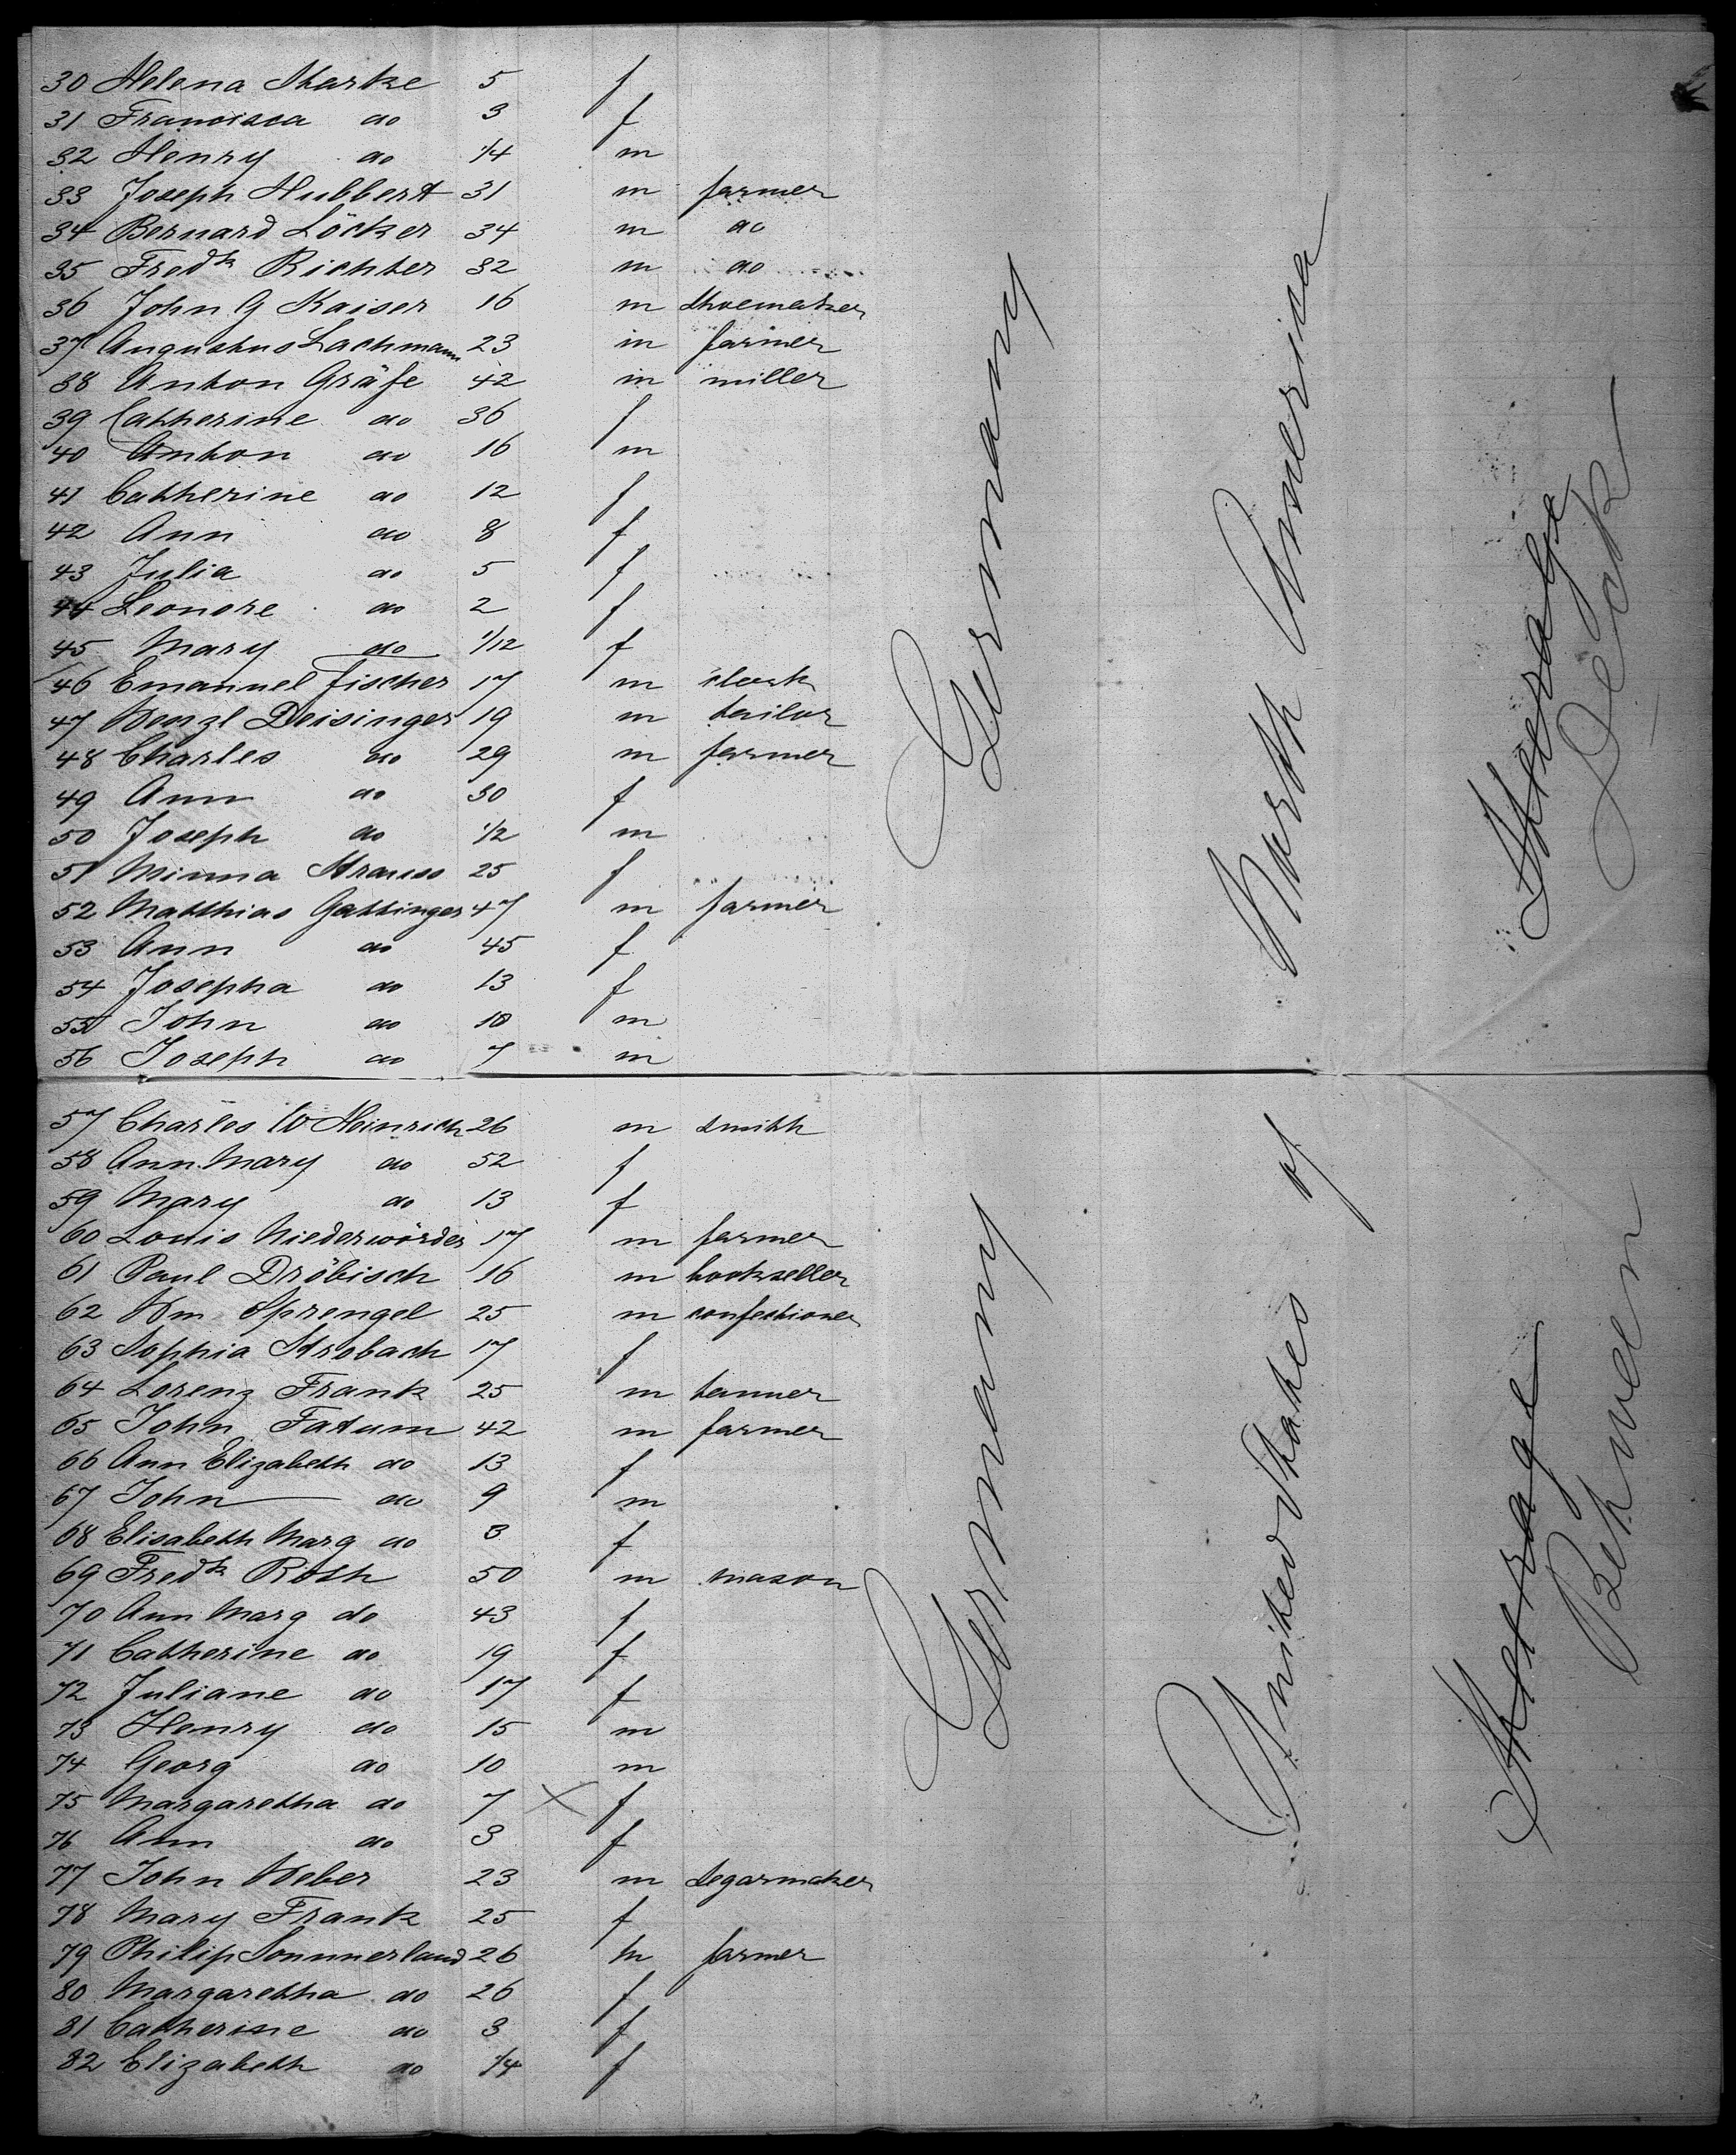 30 Helena Starke 5 f
31 Francisca do 3 f
32 Henry do 1/4 m
33 Joseph Hubbert 31 m farmer
34 Bernard Löcker 34 m do
35 Fredk Richter 32 m do
36 John G Kaiser 16 m shoemaker
37 Augustus Lachmann 23 m farmer
38 Anton Gräfe 42 m miller
39 Catherine do 36 f
40 Anton do 16 m
41 Catherine do 12 f
42 Ann do 8 f
43 Julia do 5 f
44 Leonore do 2 f
45 Mary do 1/12 f
46 Emanuel Fischer 17 m clerk
47 Wenzl Deisinger 19 m tailor
48 Charles do 29 m farmer
49 Ann do 30 f
50 Joseph do 1/2 m
51 Minna Strauss 25 f
52 Matthias Gattinger 47 m farmer
53 Ann do 45 f
54 Josepha do 13 f
55 John do 10 m
56 Joseph do 7 m
57 Charles W Heinrich 26 m smith
58 Ann Mary do 52 f
59 Mary do 13 f
60 Louis Niederwörder 17 m farmer
61 Paul Dröbisch 16 m bookseller
62 Wm Sprengel 25 m confectioner
63 Sophia Strobach 17 f
64 Lorenz Frank 25 m tanner
65 John Fatum 42 m farmer
66 Ann Elizabeth do 13 f
67 John do 9 m
68 Elisabeth Marg do 3 f
69 Fredk Roth 50 m mason
70 Ann Marg do 43 f
71 Catherine do 19 f
72 Juliane do 17 f
73 Henry do 15 m
74 Georg do 10 m
75 Margaretha do 7 f
76 Ann do 3 f
77 John Weber 23 m segarmaker
78 Mary Frank 25 f
79 Philip Sommerland 26 m farmer
80 Margaretha do 26 f
81 Catherine do 3 f
82 Elizabeth do 1/4 f
Germany Germany
United States of North America
Steerage Steerage
Between Deck